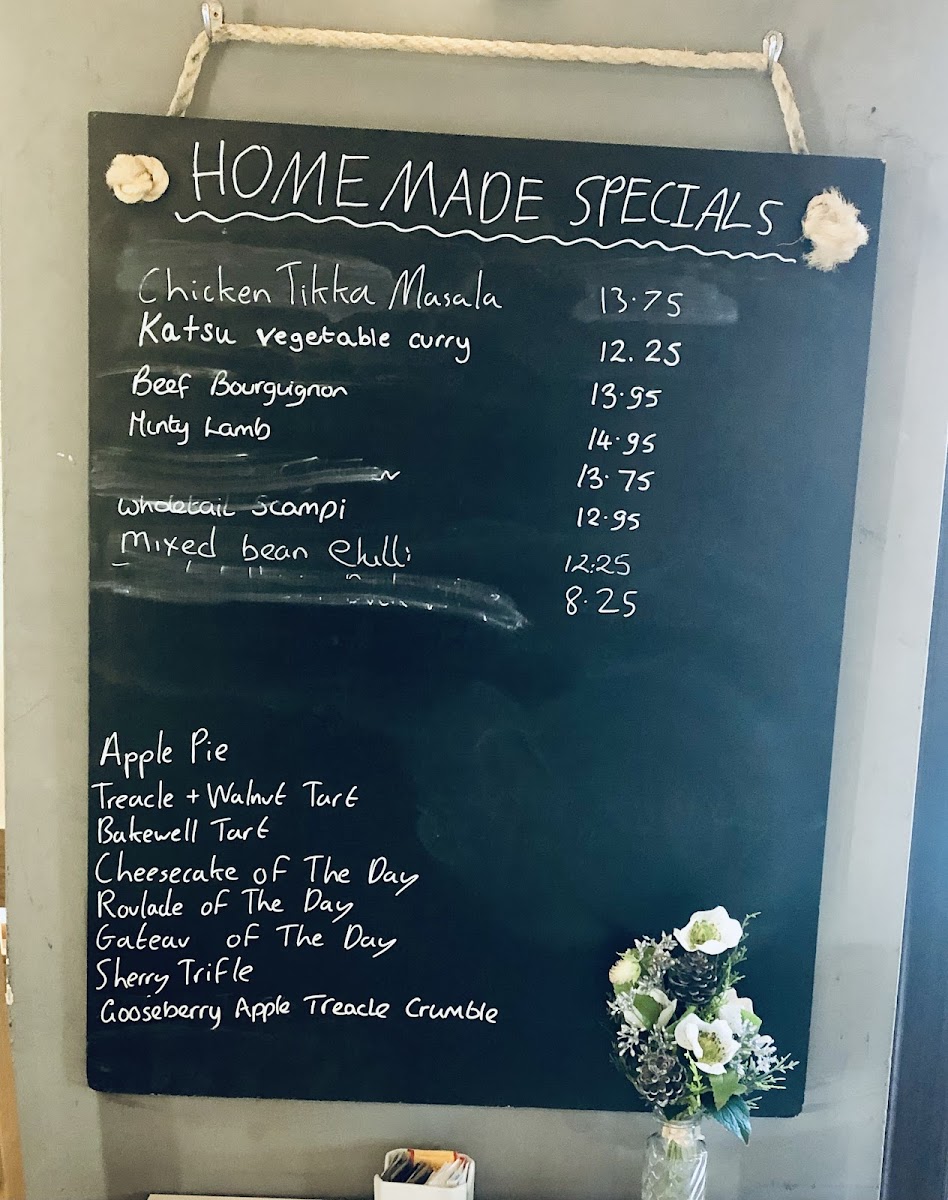 HOME MADE SPECIALS
Chicken Tikka Masala 13.75
Katsu vegetable curry 12.25
Beef Bourguignon 13.95
Minty Lamb 14.95
13.75
Wholetail Scampi 12.95
Mixed bean Chilli 12.25
8.25
Apple Pie
Treacle + Walnut Tart
Bakewell Tart
Cheesecake of The Day
Roulade of The Day
Gateau of The Day
Sherry Trifle
Gooseberry Apple Treacle Crumble